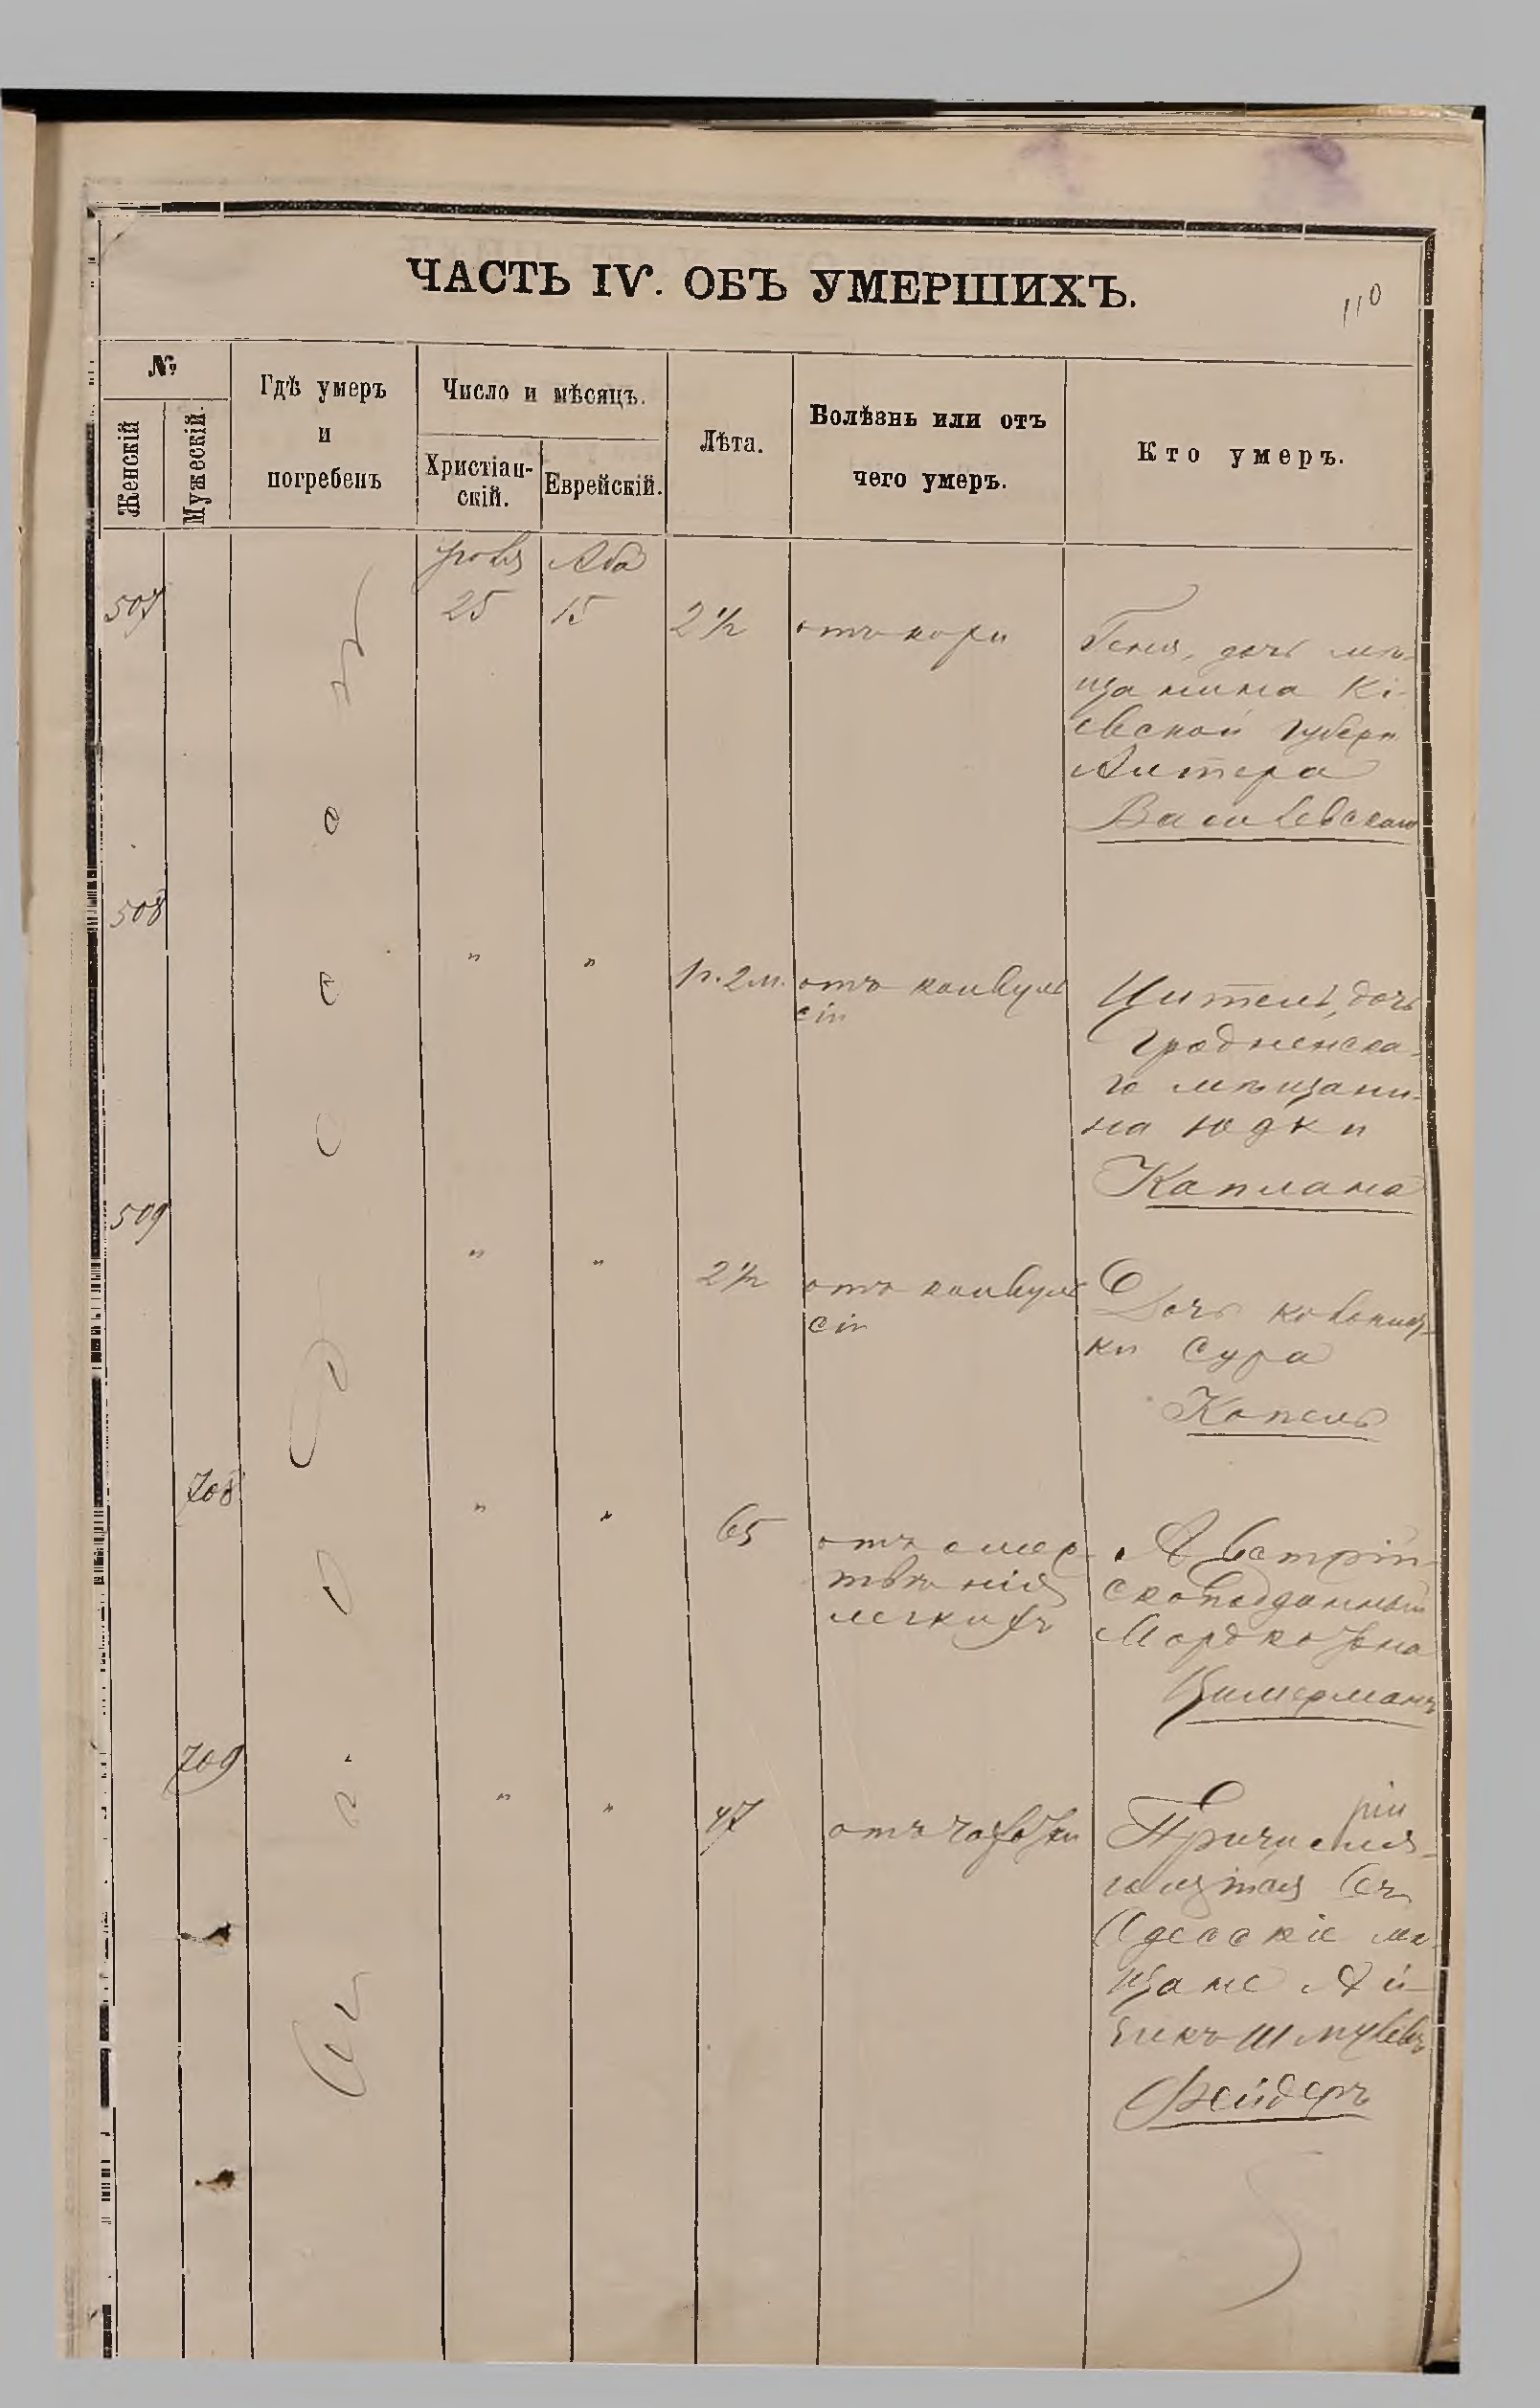 ЧАСТЬ IV. ОБЪ УМЕРШИХЪ.
110
№
Женскій
Мужескій.
Гдѣ умеръ
и
погребенъ
Число и мѣсяцъ.
Христіан-
скій.
Еврейскій.
Лѣта.
Болѣзнь или отъ
чего умеръ.
Кто умеръ.
Въ Одессѣ
Іюля Аба
507 25 15 2½ отъ кори
Геня, дочь мѣ-
щанина Кі-
евской губерн
Алтера
Василевскаго
508 " " 1г. 2м. отъ конвуль
сіи
Цитель, дочь
Гродненска-
го мѣщани-
на Юдки
Каплана
509 " " 2½ отъ конвуль
сіи
Дочь
ки Сура
Копель
708 " " 65 отъ омер-
твѣнія
легкихъ
Австрій-
скоподданный
Мордко
Цимерманъ
709 " " 47 отъ чахотки
Причисля-
ющійся къ
Одесскіе мѣ-
щане Ай-
зикъ Шмулевъ
Фейдеръ